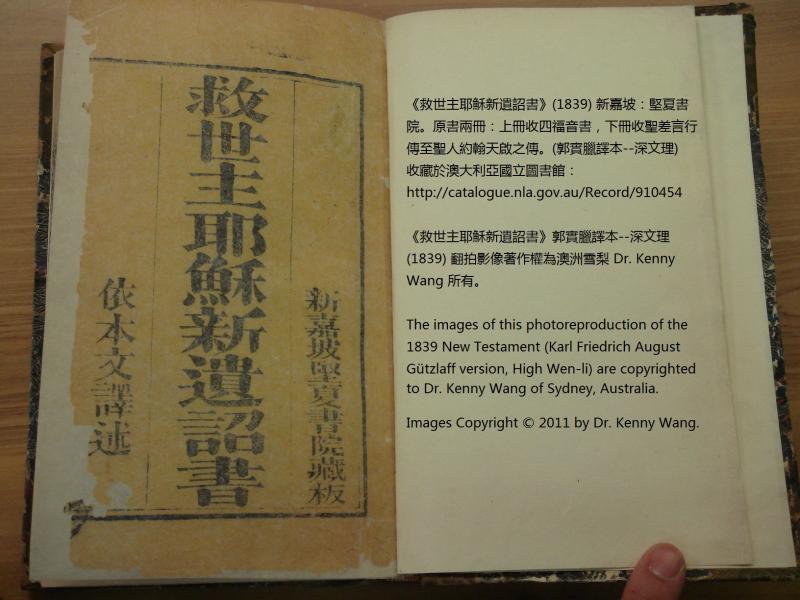 新嘉坡堅夏書院藏板
救世主耶穌新遺詔書
依本文譯述
《救世主耶穌新遺詔書》(1839) 新嘉坡：堅夏書
院。原書兩冊：上冊收四福音書，下冊收聖差言行
傳至聖人約翰天啟之傳。(郭實臘譯本--深文理)
收藏於澳大利亞國立圖書館：
http://catalogue.nla.gov.au/Record/910454
《救世主耶穌新遺詔書》郭實臘譯本--深文理
(1839) 翻拍影像著作權為澳洲雪梨 Dr. Kenny
Wang 所有。
The images of this photoreproduction of the
1839 New Testament (Karl Friedrich August
Gützlaff version, High Wen-li) are copyrighted
to Dr. Kenny Wang of Sydney, Australia.
Images Copyright © 2011 by Dr. Kenny Wang.